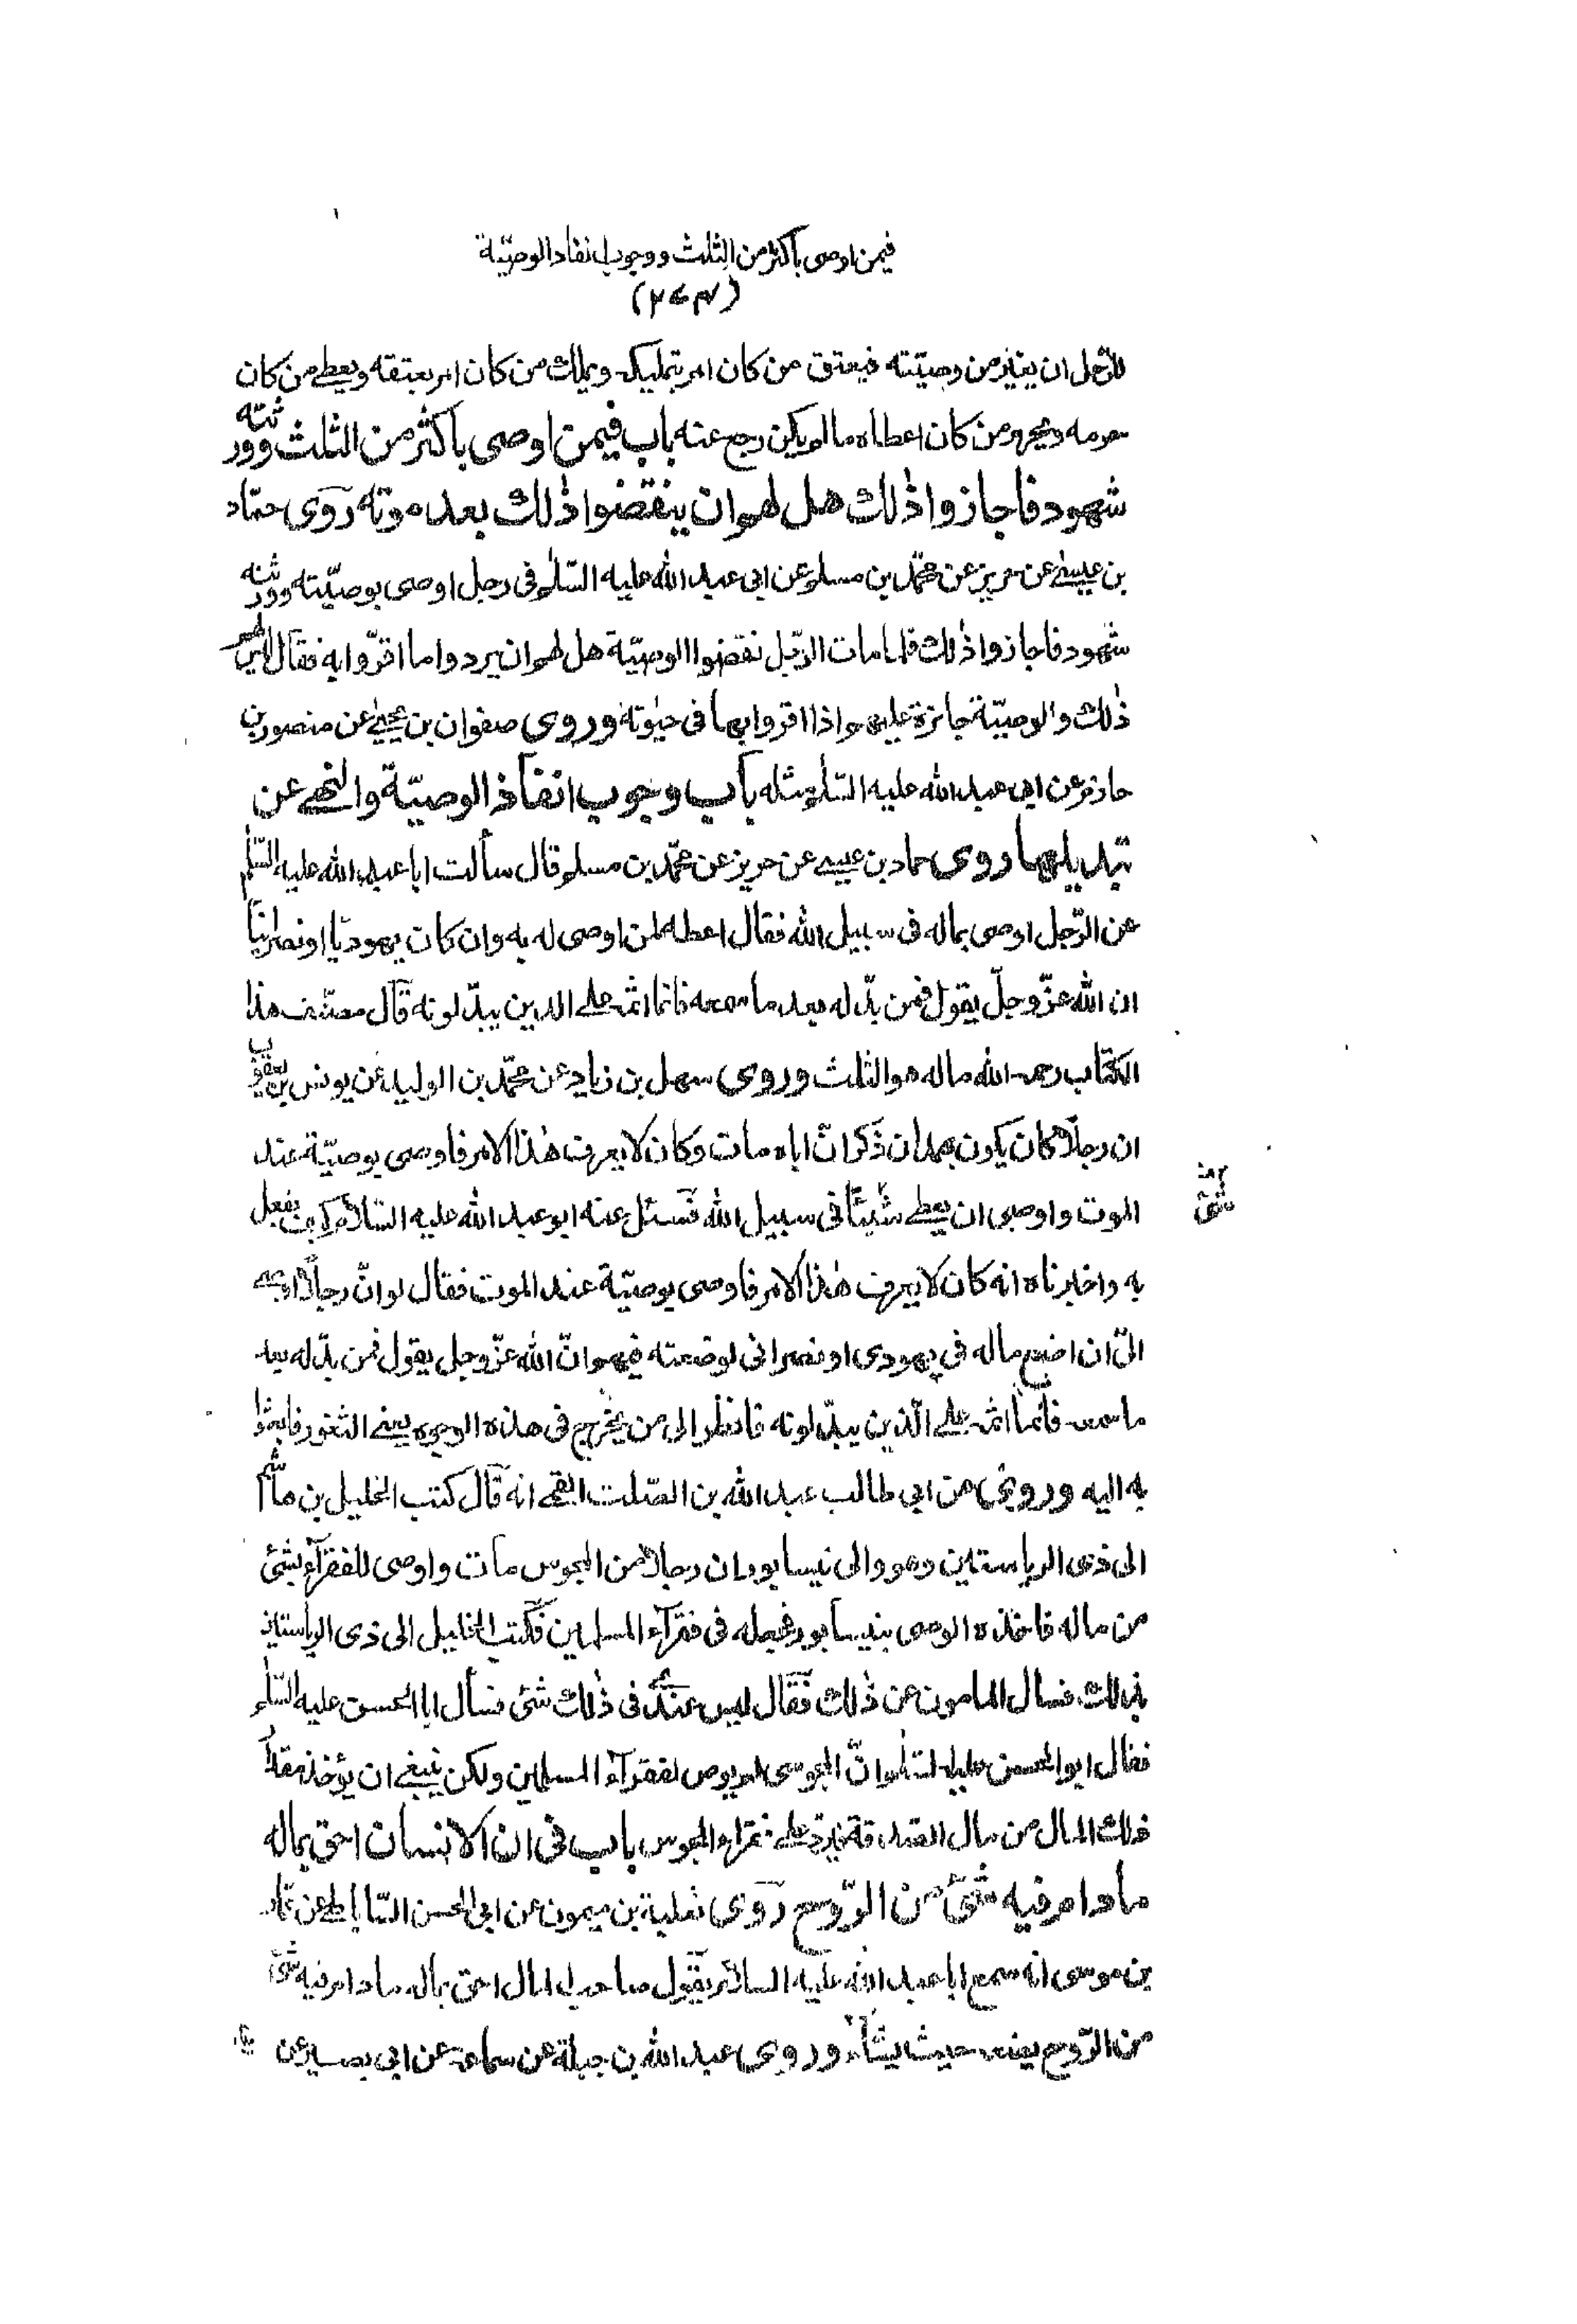 فيمن اوصى بأكثر من الثلث ووجوب انفاد الوصيّة
(٢٧٤)
للرّجل ان يغيّر من وصيّته فيعتق من كان امر بتمليكه ويملك من كان امر بعتقه ويعطے من كان
حرمه ويحرم من كان اعطاه مالم يكن رجع عنه باب فيمن اوصى باكثر من الثلث وورثته
شهود فاجازوا ذٰلك هل لهم ان ينقضوا ذٰلك بعد موته روى حمّاد
بن عيسٰے عن حريز عن محمّد بن مسلم عن ابى عبد الله عليه السّلٰم فى رجل اوصى بوصيّته وورثته
شهود فاجازوا ذٰلك فلما مات الرّجل نقضوا الوصيّة هل لهم ان يردوا ما اقرّوا به فقال ليس لهم
ذٰلك والوصيّة جائزة عليهم اذا اقروا بها فى حيٰوته وروى صفوان بن يحيٰے عن منصور بن
حازم عن ابى عبد الله عليه السّلٰم مثله باب وجوب انفاذ الوصيّة والنهے عن
تبديلها روى حماد بن عيسے عن حريز عن محمّد بن مسلم قال سألت ابا عبد الله عليه السّلٰم
عن الرّجل اوصى بماله فى سبيل الله فقال اعطه لمن اوصى له به وان كان يهوديّا او نصرانيّا
ان الله عزّ وجلّ يقول فمن بدّله بعد ما سمعه فانما اثمه علے الذين يبدّلونه قال مصنّف هذا
الكتاب رحمه الله ماله هو الثلث وروى سهل بن زياد عن محمّد بن الوليد عن يونس بن يعقوب
ان رجلًا كان يكون بهمدان ذكر انّ اباه مات وكان لا يعرف هٰذا الامر فاوصى بوصيّة عند
الموت واوصى ان يعطے شيئًا فى سبيل الله فسئل عنه ابو عبد الله عليه السّلام كيف يفعل
به واخبرناه انه كان لا يعرف هٰذا الامر فاوصى بوصيّة عند الموت فقال لو انّ رجلًا اوصى
الىّ ان اضع ماله فى يهودى او نصرانى لوضعته فيهم انّ الله عزّ وجل يقول فمن بدّله بعد
ما سمعه فانّما اثمه علے الّذين يبدّلونه فانظر الى من يخرج فى هذه الوجوه يعنے الثغور فابعثوا
به اليه وروى عن ابى طالب عبد الله بن الصّلت القمے انه قال كتب الخليل بن هاشم
الى ذى الرياستين وهو والى نيسابور ان رجلا من المجوس مات واوصى للفقرآء بشئ
من ماله فاخذه الوصى بنيسابور فجعله فى فقرآء المسلمين فكتب الخليل الى ذى الرياستين
بذلك فسال المامون عن ذٰلك فقال ليس عندى فى ذٰلك شئ فسأل ابا الحسن عليه السّلٰم
فقال ابو الحسن عليه السّلٰم انّ المجوسى لم يوص لفقرآء المسلمين ولكن ينبغے ان يؤخذ مقدار
ذلك المال من مال الصّدقة فيردّ علے فقراء المجوس باب فى ان الانسان احق بماله
مادام فيه شئ من الرّوح روى ثعلبة بن ميمون عن ابى الحسن السّاباطے عن عمّار
بن موسى انه سمع ابا عبد الله عليه السلام يقول صاحب المال احق بماله مادام فيه شئ
من الرّوح يضعه حيث يشآء وروى عبد الله بن جبلة عن سماعة عن ابى بصير عن